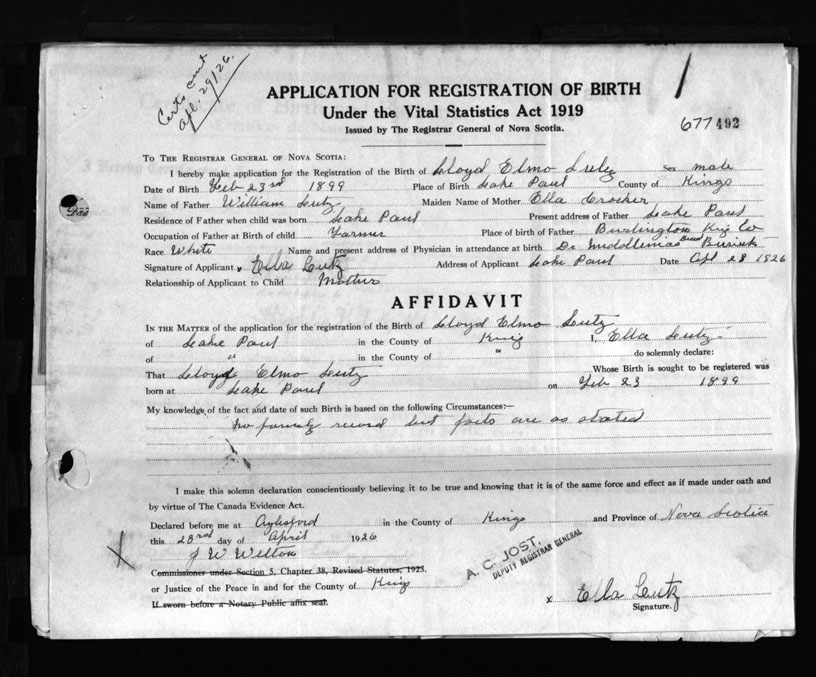 Certs sent
Apl. 29/26.
APPLICATION FOR REGISTRATION OF BIRTH
Under the Vital Statistics Act 1919
Issued by The Registrar General of Nova Scotia.
677 492
TO THE REGISTRAR GENERAL OF NOVA SCOTIA:
I hereby make application for the Registration of the Birth of Lloyd Elmo Lutz Sex male
Date of Birth Feb 23rd 1899 Place of Birth Lake Paul County of Kings
Name of Father William Lutz Maiden Name of Mother Ella Crocker
Residence of Father when child was born Lake Paul Present address of Father Lake Paul
Occupation of Father at Birth of child Farmer Place of birth of Father Burlington King Co
Race White Name and present address of Physician in attendance at birth Dr Middlemas Berwick
Signature of Applicant x Ella Lutz Address of Applicant Lake Paul Date Apl 28 1926
Relationship of Applicant to Child Mother
AFFIDAVIT
IN THE MATTER of the application for the registration of the Birth of Lloyd Elmo Lutz
of Lake Paul in the County of King I, Ella Lutz
of " in the County of " do solemnly declare:
That Lloyd Elmo Lutz Whose Birth is sought to be registered was
born at Lake Paul on Feb 23 1899
My knowledge of the fact and date of such Birth is based on the following Circumstances:—
No family record but facts are as stated
I make this solemn declaration conscientiously believing it to be true and knowing that it is of the same force and effect as if made under oath and
by virtue of The Canada Evidence Act.
Declared before me at Aylesford in the County of Kings and Province of Nova Scotia
this 28rd day of April 1926
J W Wilton
Commissioner under Section 5, Chapter 38, Revised Statutes, 1923,
or Justice of the Peace in and for the County of King
If sworn before a Notary Public affix seal.
A. C. JOST,
DEPUTY REGISTRAR GENERAL
x Ella Lutz
Signature.